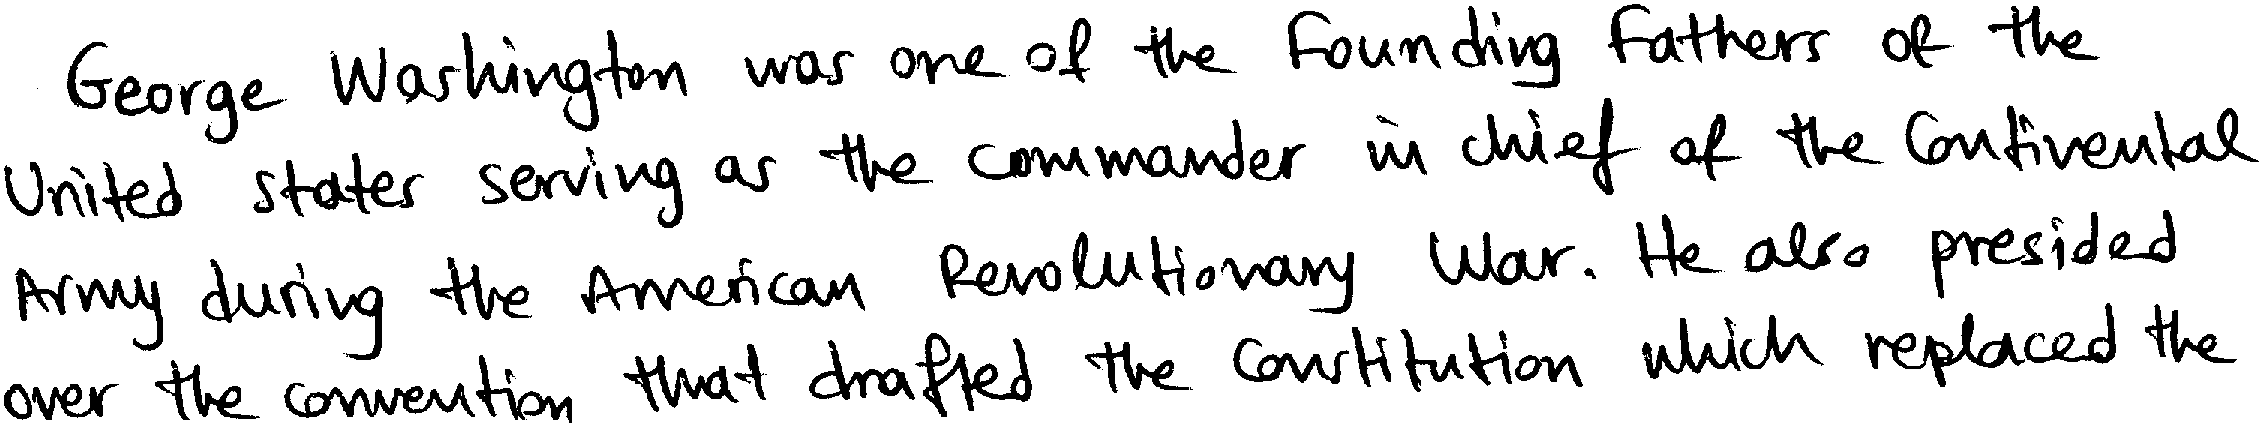 George Washington was one of the Founding Fathers of the
United States serving as the commander in chief of the Continental
Army during the American Revolutionary War. He also presided
over the convention that drafted the Constitution which replaced the